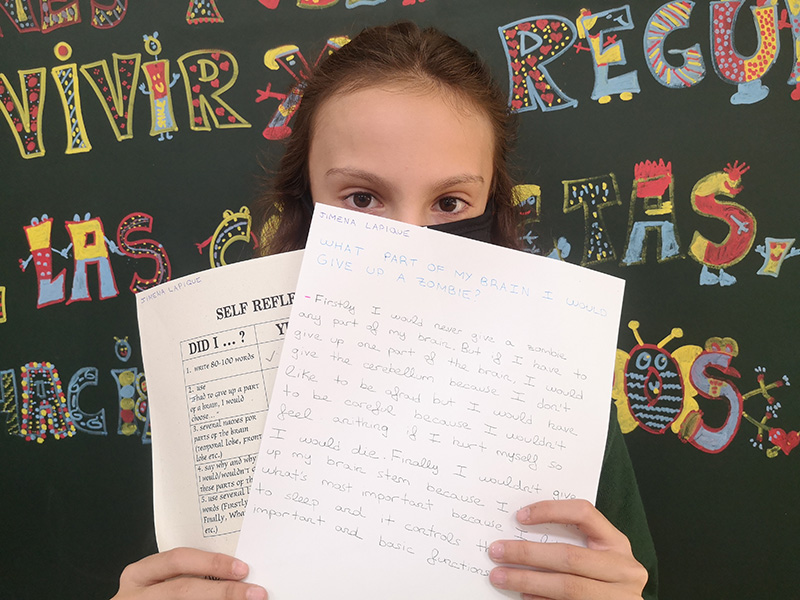 VIVIR
Y
REGU
LAS
TAS
OS
JIMENA LAPIQUE
SELF REFLE
DID I ... ?
1. write 80-100 words
✓
2. use
"If had to give up a part
of a brain, I would
choose ..."
3. several names for
parts of the brain
(temporal lobe, front
lobe etc.)
4. say why and why
I would/wouldn't
these parts of th
5. use several l
words (Firstly
Finally, Wha
etc.)
JIMENA LAPIQUE
WHAT PART OF MY BRAIN I WOULD
GIVE UP A ZOMBIE?
- Firstly I would never give a zombie
any part of my brain. But if I have to
give up one part of the brain, I would
give the cerebellum because I don't
like to be afraid but I would have
to be careful because I wouldn't
feel anything if I hurt myself so
I would die. Finally I wouldn't give
up my brain stem because I
what's most important because I
to sleep and it controls th
important and basic functions